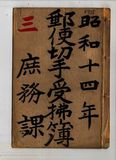 昭和十四年
郵便切手受払簿
庶務課
三